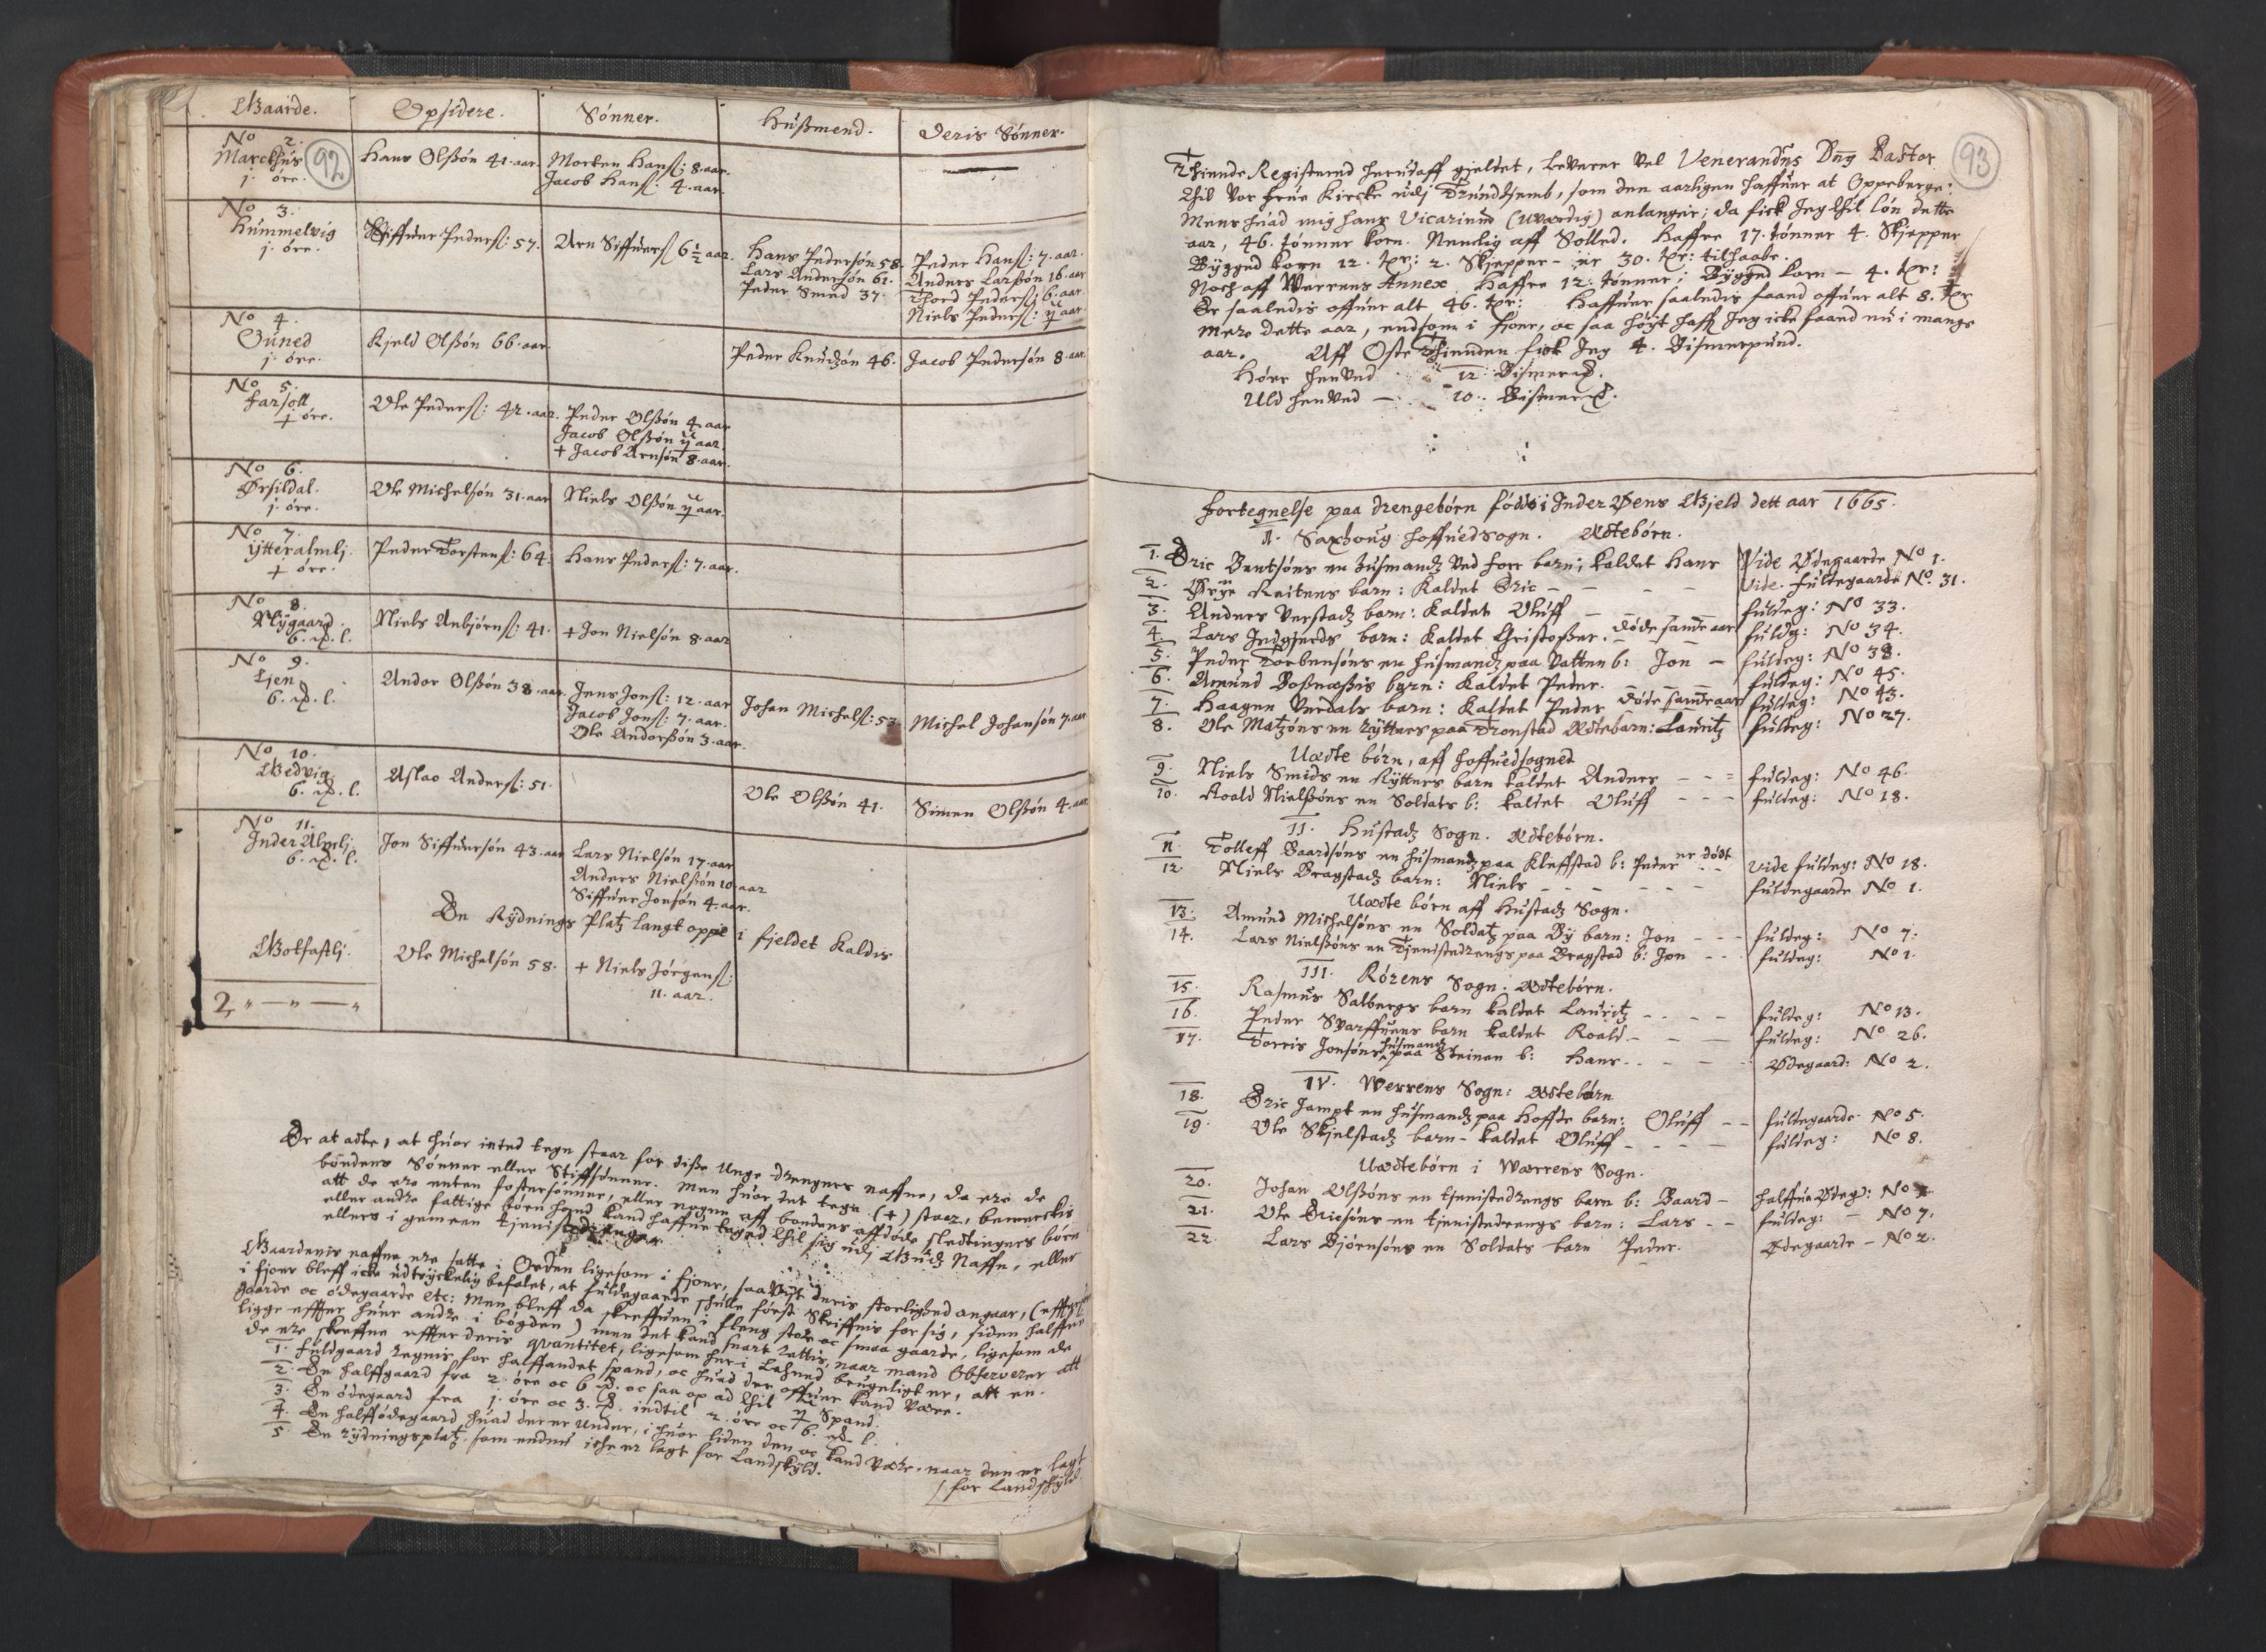 Gaarde. Opsidere. Sønner. Husmend. Deris Sønner.
No 2.
Marckhus Hans Olßøn 41. aar. Morten Hanß: 8. aar.
92
1. øre. Jacob Hanß: 4. aar.
No 3.
Hummelvig Siffuer Pederß: 57. Arn Siffuerß 6 1/2 aar. Hans Pedersøn 58. Peder Hanß: 7. aar.
1. øre. Lars Andersøn 61. Anders Larßøn 16. aar
Peder Smed 37. Thord Pederß: 6. aar.
Niels Pederß: aar.
No 4.
Kjeld Olßøn 66. aar. Peder Knudzøn 46. Jacob Pedersøn 8. aar.
1. øre.
No 5.
Farsoll Ole Pederß: 42. aar. Peder Olßøn 4. aar
øre. Jacob Olßøn aar.
+ Jacob Arnsøn 8. aar.
No 6.
Ørsildal. Ole Michelsøn 31. aar Niels Olßøn aar.
1. øre.
No 7.
Ytteralmlj. Peder Torstenß: 64. Hans Pederß: 7. aar.
øre.
No 8.
Nygaard. Niels Anbjørnß: 41. + Jon Nielsøn 8. aar
6. l.
No 9.
Ljen Andor Olßøn 38. aar. Jens Jonß: 12. aar Johan Michelß: 53 Michel Johansøn 7. aar
6. l. Jacob Jonß: 7. aar.
Ole Andorßøn 3. aar.
No 10.
Gedvig. Aslao Anderß: 51. Ole Olßøn 41. Simen Olßøn 4. aar
6. l.
No 11.
Inder Almlj. Jon Siffuersøn 43. aar Lars Nielsøn 17. aar
6. l. Anders Nielßøn 10. aar
Siffuer Jonsøn 4. aar.
En Rydnings Platz langt oppe i fjeldet kaldis
Gotfastlj. Ole Michelsøn 58. + Niels Jørgenß:
11. aar.
2
Er at acte, at huor inted tegn staar for disse Unge drengers naffne, da ere de
bondens Sønner eller Stiffsønner. Men huor det tegn (+) staar, bemerckis
att de ere enten fostersønner, eller nogen aff bondens affdøde slectingers børn
eller andre fattige børn hand kand haffue taged thil sig udj Guds Naffn, eller
ellers i gemeen tjenistedrenger.
Gaardenis naffne ere satte i Orden ligesom i fjoer, saauit deris storlighed angaar, (effter
i fjoer bleff icke udtryckelig befalet, at fuldegaarde skulle først Skriffuis for sig, siden halffue
gaarde oc ødegaarde etc: Men bleff da skreffuen i fleng store oc smaa gaarde, ligesom de
ligge effter huer andre i bøgden) men det kand snart rettis, naar mand Observerer att
de ere skreffne effter deris quantitet, ligesom her i Lehned brugeligt er, att en.
1. Fuldgaard regnis for halffandet spand, oc huad der offuer kand være.
2. En halffgaard fra 2. øre oc 6 oc saa op ad thil Spand.
3. En ødegaard fra 1. øre oc 3. indtil 2. øre oc 6. l.
4. En halffødegaard huad der er Under, i huor liden den oc kand være. naar den er lagt
for Landskyld.
5 En rydningsplatz, som endnu icke er lagt for Landskyld.
93
Thiende Registered herudaff gjeldet, leverer vel Venerandus Dns Pastor
thil Vor frue Kircke udj Trundhjemb, som den aarligen haffuer at Oppeberge:
Mens huad mig hans Vicarium (uværdig) anlanger; da fick Jeg thil løn dette
aar, 46. tønner korn. Nemlig aff Solled. Haffre 17. tønner 4. Skjepper
Bygged korn 12. tør: 2. Skjepper - er 30. tør: tilhaabe.
Noch aff Werrens Annex Haffre 12: tønner; Bygged korn - 4. tør:
Er saaledis offuer alt 46. tør: Haffuer saaledis faaed offuer alt 8. tør
mere dette aar, end som i fjoer, oc saa høyt haff Jeg icke faaed nu i mange
aar. Aff Oste Thienden fick Jeg 4. Bismerpund.
Hørr henved 12 Bismer.
Uld henved — 10. Bismer.
Fortegnelse paa drengebørn fødde i Inder Øens Gjeld dett aar 1665.
I. Saxhoug hoffuedsogn. Ectebørn.
1. Eric Bentsøns en husmandz ved fore barn; kaldet Hans Vide Ødegaarde No 1.
2. Reitens barn: kaldet Eric - - - Vide. fuldegaarde No. 31.
3. Anders Verstadz barn: kaldet Oluff - - - fuldeg: No 33.
4. Lars Indgjerds barn: kaldet Christoffer. døde samme aar fuldg: No 34.
5. Peder Torbensøns en husmandz paa Vatten b: Jon - fuldeg: No 38.
6. Amund barn: kaldet Peder. - - - fuldeg: No 45.
7. Haagen Verdals barn: kaldet Peder døde samme aar fuldeg: No 43.
8. Ole Matzøns en rytters paa Tronstad Ectebarn: Lauritz fuldeg: No 27.
Uecte børn, aff hoffuedsogned
9. Niels Smids en Rytters barn kaldet Anders - - - fuldeg: No 46.
10. Roald Nielßøns en Soldats b: kaldet Oluff - - - fuldeg: No 18.
II. Hustadz Sogn. Ectebørn.
11. Tolleff Baardsøns en husmandz paa Kleffstad b: Peder er dødt - - Vide fuldeg: No 18.
12. Niels Bragstadz barn: Niels - - - - - fuldegaarde No 1.
Uecte børn aff Hustadz Sogn.
13. Amund Michelsøns en Soldatz paa By barn: Jon - - - fuldeg: No 7.
14. Lars Nielßøns en Tjenistedrengs paa Bragstad b: Jon - - fuldeg: No 1.
III. Rørens Sogn: Ectebørn.
15. Rasmus Salbergs barn kaldet Lauritz - - - - fuldeg: No 13.
16. Peder Svarffuens barn kaldet Roald - - - fuldeg: No 26.
17. Torris Jonsøns husmandz paa Steinen b: Hans - - - Ødegaard: No 2.
IV. Werrens Sogn: Ectebørn
18. Eric Jampt en husmandz paa Hoffde barn: Oluff - - fuldegaarde No 5.
19. Ole Skjelstadz barn - kaldet Oluff - - - - fuldeg: No 8.
Uectebørn i Werrens Sogn.
20. Johan Olßøns en tjenistedrengs barn b: Baard - halffue Ødeg: No
21. Ole Ericsøns en tjenistedrengs barn: Lars - - fuldeg: - No 7.
22. Lars Bjørnsøns en Soldats barn Peder. Ødegaarde - No 2.